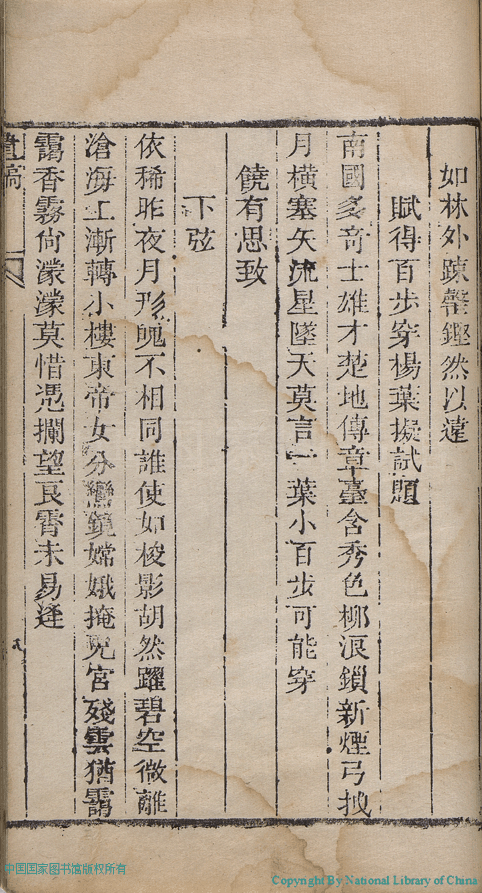 如林外疎磬鏗然以遠
賦得百步穿楊葉擬試題
南國多奇士雄才楚地傳章臺含秀色柳浪鎖新煙弓披
月橫塞矢流星墜天莫言一葉小百步可能穿
饒有思致
下弦
依稀昨夜月形魄不相同誰使如梭影胡然躍碧空微離
滄海上漸轉小樓東帝女分鸞鏡嫦娥掩兎宮殘雲猶靄
靄香霧尙濛濛莫惜憑攔望良霄未易逢
遺稿
中国国家图书馆版权所有
Copyright By National Library of China